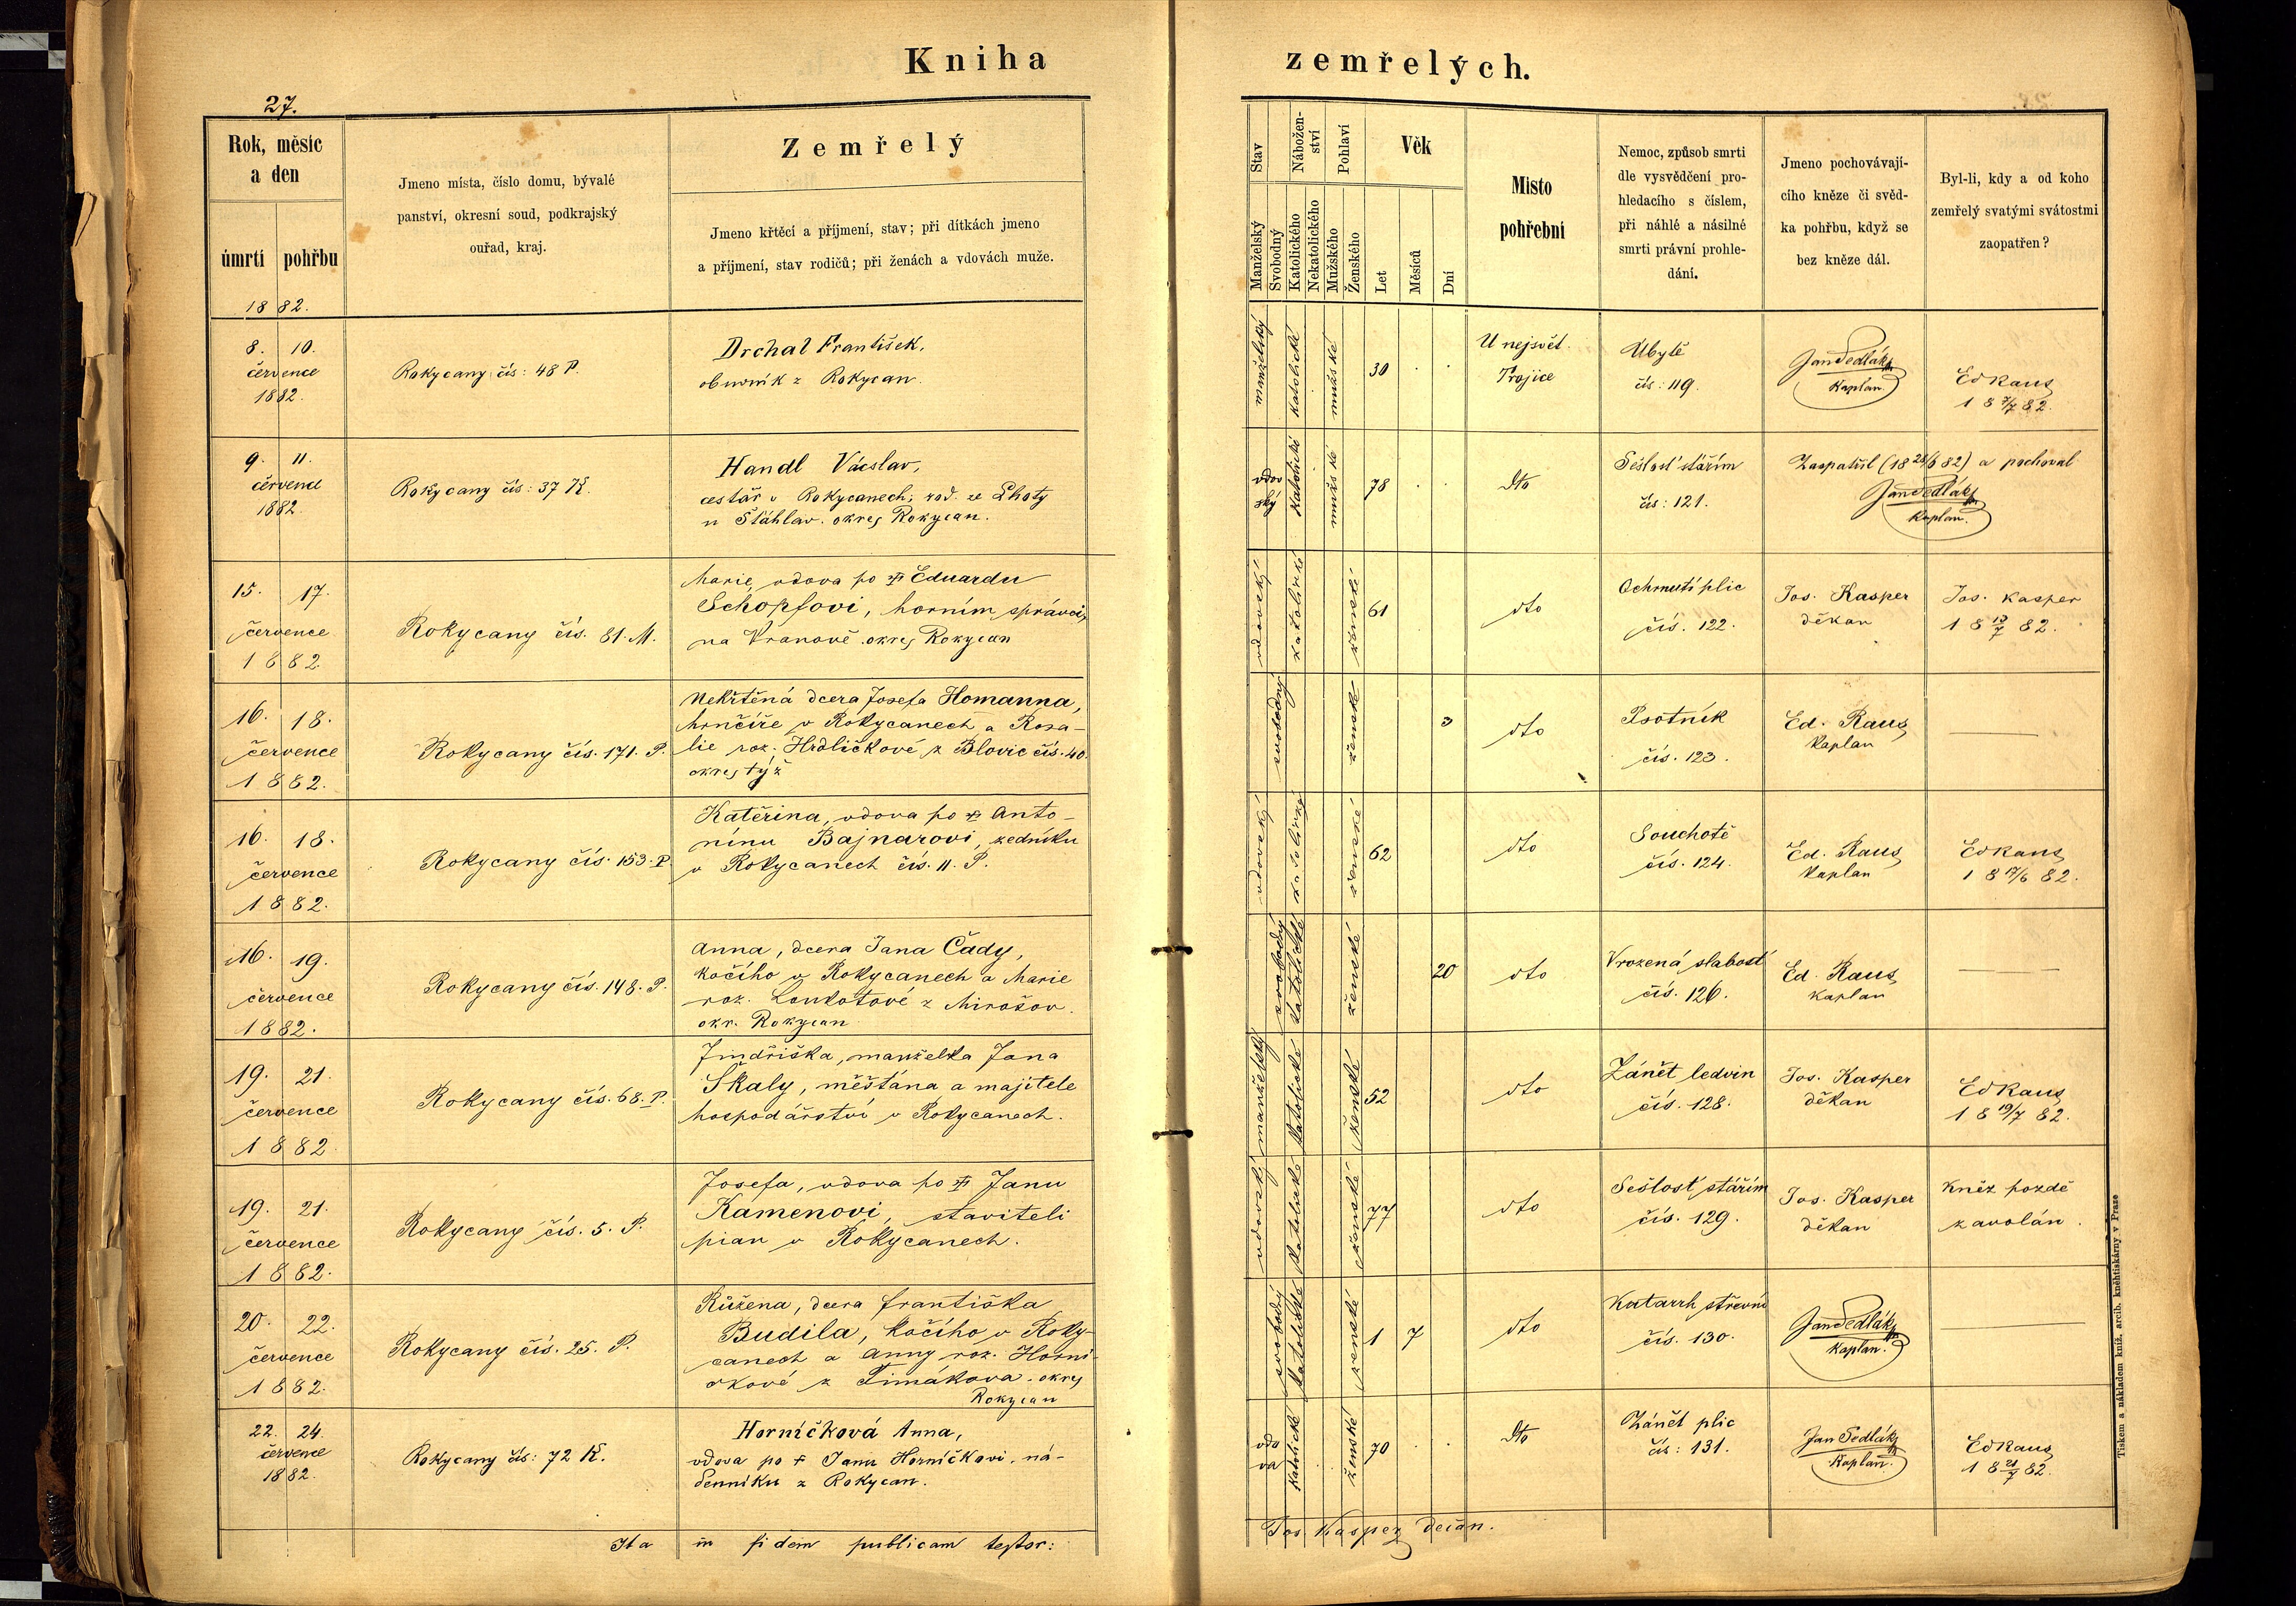 Kniha zemřelých.
27.
Rok, měsíc
a den
úmrtí pohřbu
1882.
Jmeno místa, číslo domu, bývalé
panství, okresní soud, podkrajský
ouřad, kraj.
Zemřelý
Jmeno křtěcí a příjmení, stav; při dítkách jmeno
a příjmení, stav rodičů; při ženách a vdovách muže.
Stav
Manželský
Svobodný
Nábožen-
ství
Katolického
Nekatolického
Pohlaví
Mužského
Ženského
Věk
Let
Měsíců
Dní
Místo
pohřební
Nemoc, způsob smrti
dle vysvědčení pro-
hledacího s číslem,
při náhlé a násilné
smrti právní prohle-
dání.
Jmeno pochovávají-
cího kněze či svěd-
ka pohřbu, když se
bez kněze dál.
Byl-li, kdy a od koho
zemřelý svatými svátostmi
zaopatřen?
8. 10.
července
1882.
Rokycany čís: 48 P.
Drchal František,
obuvník z Rokycan.
manželský katolické mužské 30
U nejsvět.
Trojice
Úbytě
čís: 119.
Jan Sedlák
Kaplan.
Ed Raus
18 7/7 82.
9. 11.
července
1882
Rokycany čís: 37 K.
Handl Vácslav,
cestář v Rokycanech, rod. ze Lhoty
u Šťáhlav. okres Rokycan.
vdov
ský katolické mužské 78
dto
Sešlosť stářím
čís: 121.
Zaopatřil (18 28/6 82) a pochoval
Jan Sedlák
Kaplan.
15. 17.
července
1882.
Rokycany čís. 81. M.
Marie, vdova po † Eduardu
Schopfovi, horním správci
na Vranově. okres Rokycan
vdovský katolické ženské 61
dto
Ochrnutí plic
čís. 122.
Jos. Kasper
děkan
Jos. Kasper
18 13/7 82.
16. 18.
července
1882.
Rokycany čís. 171. P.
Nekřtěná dcera Josefa Homanna,
hrnčíře v Rokycanech a Rosa-
lie roz. Hrdličkové z Blovic čís. 40.
okres týž
svobodný ženské 3
dto
Psotník
čís. 123.
Ed. Raus
Kaplan
16. 18.
července
1882.
Rokycany čís. 153. P
Kateřina, vdova po † Anto-
nínu Bajnarovi, zedníku
v Rokycanech čís. 11. P.
vdovský ženské 62
dto
Souchotě
čís. 124.
Ed. Raus
Kaplan
Ed Raus
18 17/6 82.
16. 19.
července
1882.
Rokycany čís. 148. P.
Anna, dcera Jana Čady,
kočího v Rokycanech a Marie
roz. Loukotové z Mirošov.
okr. Rokycan
svobodný katolické ženské 20
dto
Vrozená slabosť
čís. 126.
Ed. Raus
Kaplan
19. 21.
července
1882.
Rokycany čís. 68. P.
Jindřiška, manželka Jana
Skaly, měšťána a majitele
hospodářství v Rokycanech.
manželský katolické ženské 52
dto
Zánět ledvin
čís. 128.
Jos. Kasper
děkan
Ed Raus
18 19/7 82.
19. 21.
července
1882.
Rokycany čís. 5. P.
Josefa, vdova po † Janu
Kamenovi, staviteli
pian v Rokycanech.
vdovský katolické ženské 77
dto
Sešlosť stářím
čís. 129.
Jos. Kasper
děkan
Kněz pozdě
zavolán.
20. 22.
července
1882.
Rokycany čís. 25. P.
Růžena, dcera Františka
Budila, kočího v Roky-
canech a Anny roz. Horni-
čkové z Timákova. okres
Rokycan
svobodný katolické ženské 1 7
dto
Katarrh střevní
čís. 130.
Jan Sedlák
Kaplan.
22. 24.
července
1882.
Rokycany čís: 72 K.
Horníčková Anna,
vdova po † Janu Horníčkovi, ná-
denníku z Rokycan.
vdo
va katolické ženské 70
dto
Zánět plic
čís: 131.
Jan Sedlák
Kaplan.
Ed Raus
18 21/7 82.
Ita in fidem publicam testor:
Jos. Kasper decan.
Tiskem a nákladem kníž. arcib. knihtiskárny v Praze